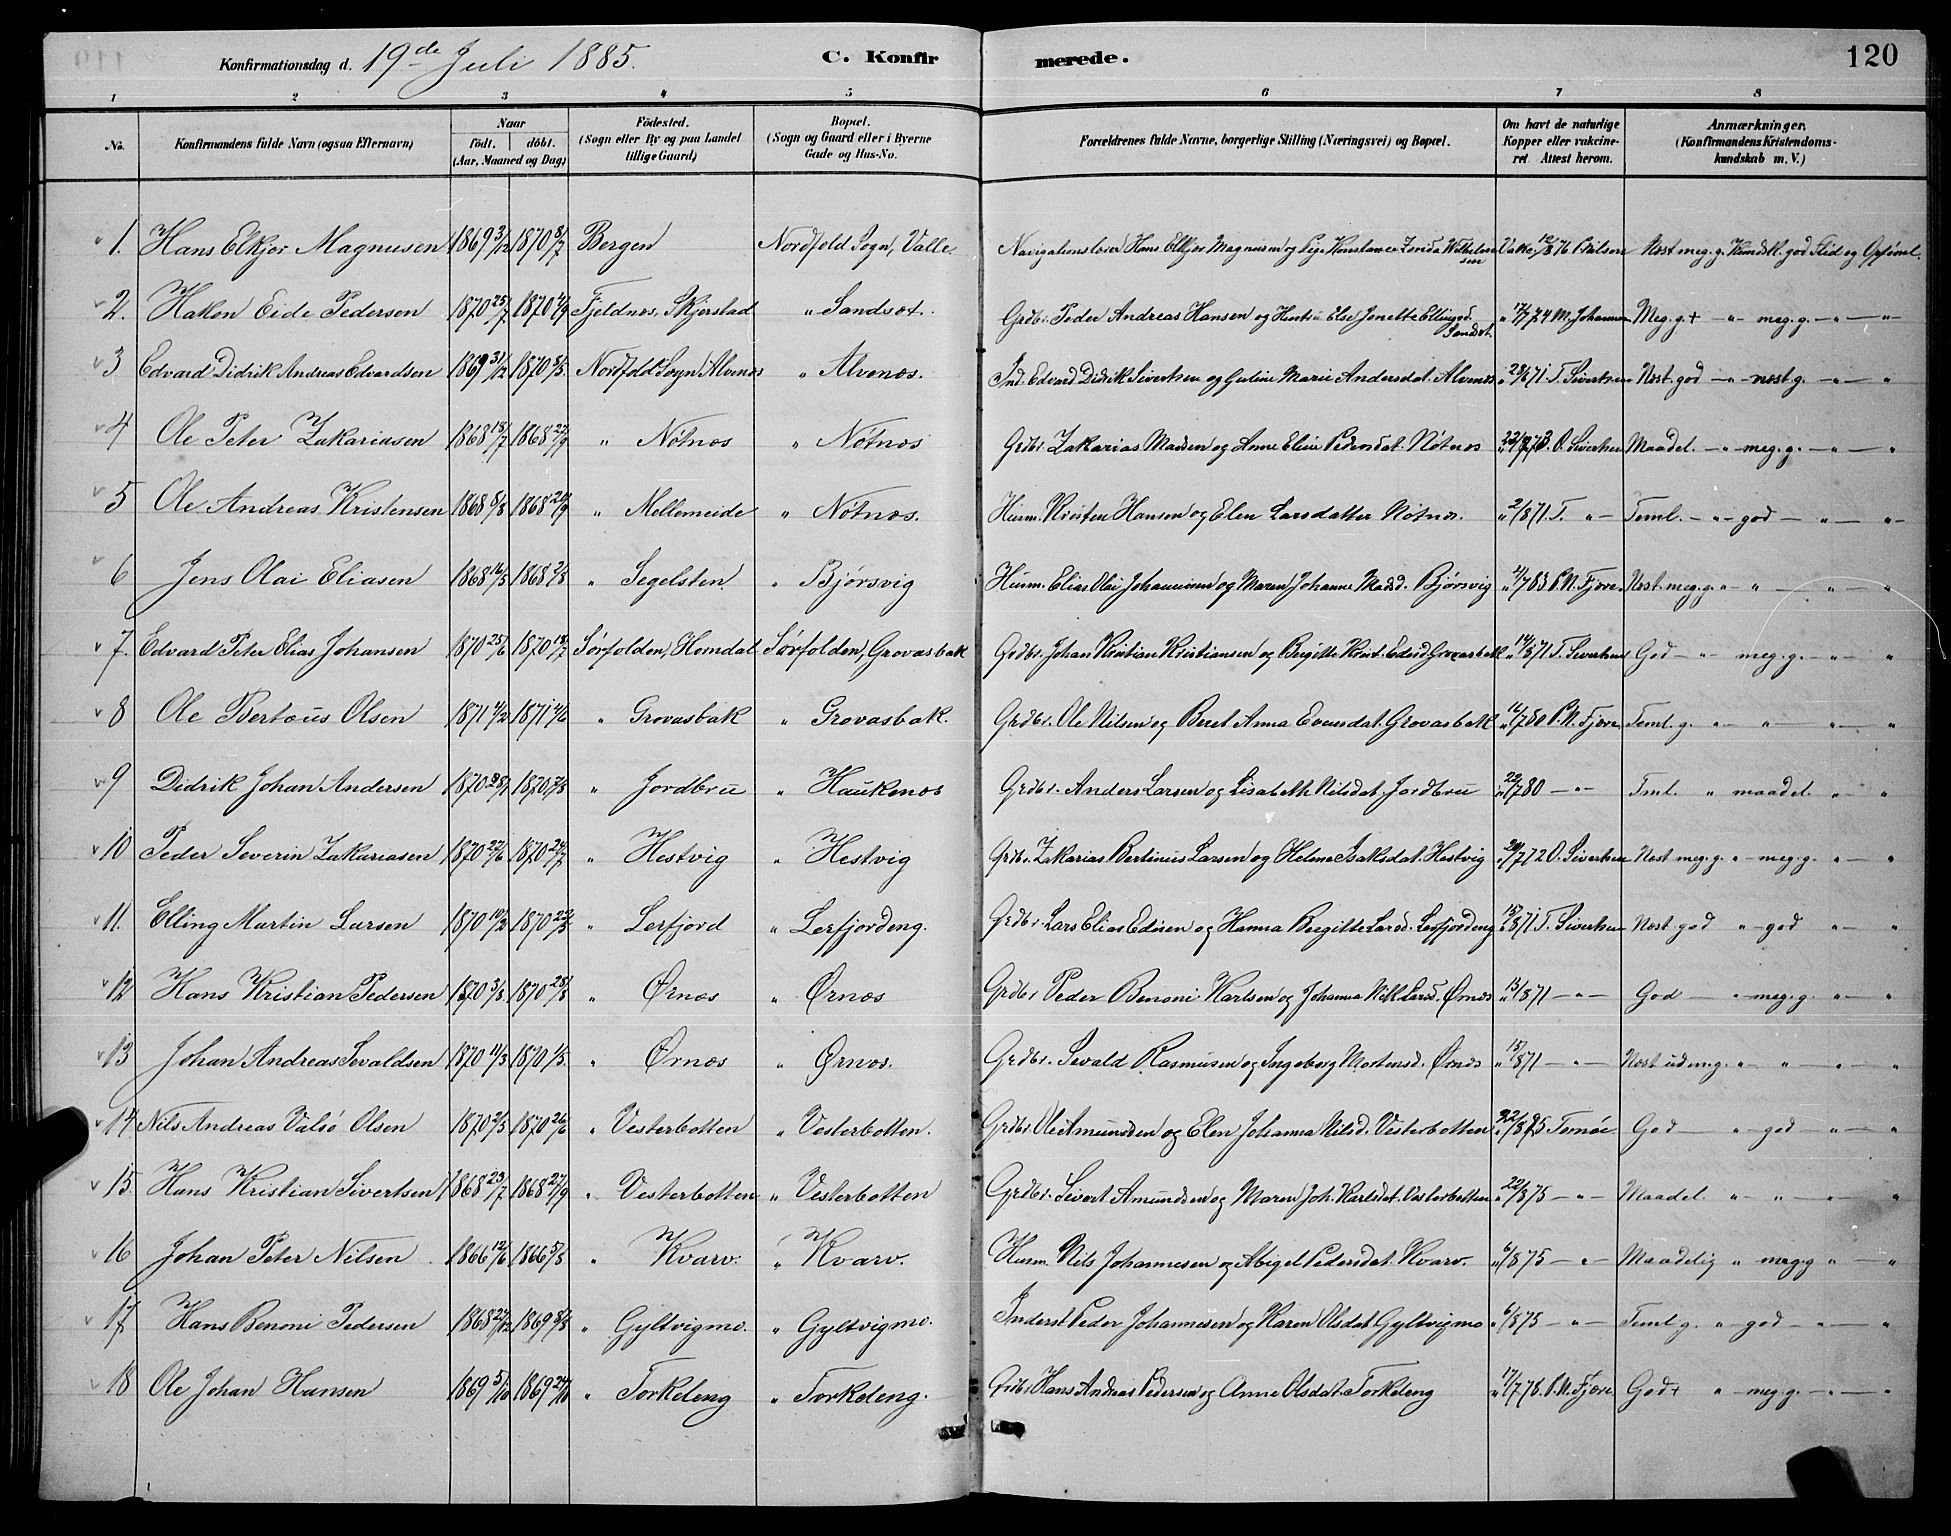 Konfirmationsdag d. 19de Juli 1885. C. Konfirmerede. 120
1 2 3 4 5 6 7 8
No. Konfirmandens fulde Navn (ogsaa Efternavn) Naar født. døbt. (Aar, Maaned og Dag) Fødested. (Sogn eller By og paa Landet tillige Gaard) Bopæl. (Sogn og Gaard eller i Byerne Gade og Hus-No. Forældrenes fulde Navne, borgerlige Stilling (Næringsvei) og Bopæl. Om havt de naturlige Kopper eller vaccineret Attest herom. Anmærkninger. (Konfirmandens Kristendomskundskab m. V.)
1. Hans Elkjør Magnusen 1869 3/12 1870 8/7 Bergen Nordfold Sogn, Valle Navigationslærer Hans Elkjør Magnusen og Pige Konstance Vilhelmsen Vakc. 12/8 76 Nilsen Næst meg. g. Kundsk. god Flid og Opførsel.
2. Hakon Eide Pedersen 1870 25/7 1870 4/9 Fjeldnes, Skjerstad " Sandset. Grdbr. Peder Andreas Hansen og Hustru Else Jonette Ellingsd. Sandset. " 17/7 74 M. Johannesen Meg. g.+ — " — meg. g. — " — " —
3 Edvard Didrik Andreas Edvardsen 1869 31/12 1870 8/5. Nordfold Sogn, Alvenes " Alvenes. Ind. Edvard Didrik Sivertsen og Guline Marie Andersdat. Alvenes " 28/6 71 T. Sivertsen Næst god — " — næst g. — " — "
4 Ole Peter Zakariasen 1868 18/7 1868 27/9 " Nøtnes " Nøtnes Grdbr. Zakarias Madsen og Anne Eline Pedersdat. Nøtnes O. Sivertsen Maadel. — " — meg. g. — " — "
5 Ole Andreas Kristensen 1868 8/8 1868 20/9 " Mellemeide " Nøtnes. Husm. Kristen Hansen og Elen Larsdatter Nøtnes. " 2/8 71. T. " — Teml. — " — god — " — " —
6 Jens Olai Eliasen 1868 16/5 1868 2/8 " Segelsten " Bjørsvig Husm. Elias Olai Johannesen og Maren Johanne Madsd. Bjørsvig " 4/7 83 P. N. Fjære Næst meg. g. " — " — " — "
7. Edvard Peter Elias Johansen 1870 25/6 1870 17/7 Sørfolden, Horndal Sørfolden, Grovasbak Grdbr. Johan Kristian Kristiansen og Birgitte Krist. Edisd. Grovasbak " 14/8 71 T. Sivertsen God — " — meg. g. — " — "
8 Ole Bertæus Olsen 1871 4/2 1871 4/6 " Grovasbak " Grovasbak. Grdbr. Ole Nilsen og Beret Anna Evensdat. Grovasbak " 16/7 80 P. N. Fjære Teml. g. " — " — " — "
9 Didrik Johan Andersen 1870 28/1 1870 7/8 " Jordbru " Haukenes Grdbr. Anders Larsen og Lisabeth Nilsdat. Jordbru " 29/7 80 — " — Tml. " maadel. " — "
10 Peder Severin Zakariasen 1870 27/6 1870 24/7 " Hestvig " Hestvig Grdbr. Zakarias Bertinus Larsen og Helene Isaksdat. Hestvig " 20/7 72 O. Sivertsen Næst meg. g. " — meg. g. " — "
11. Elling Martin Larsen 1870 10/2 1870 22/5 " Lerfjord " Lerfjordeng. Grdbr. Lars Elias Edisen og Hanna Birgitte Larsd. Lerfjordeng " 15/8 71 T. Sivertsen Næst god " — god " — "
12 Hans Kristian Pedersen 1870 3/8. 1870 28/8 " Ørnes " Ørnes Grdbr. Peder Benoni Karlsen og Johanna Nik. Larsd. Ørnes " 13/8 71 — " — God — " — meg. g. " — "
13 Johan Andreas Sevaldsen 1870 11/3 1870 1/5. " Ørnes " Ørnes. Grdbr. Sevald Rasmusen og Ingeborg Mortensd. Ørnes " 15/8 71 — " — Næst udm. g. " — " — " — "
14 Nils Andreas Valsø Olsen 1870 2/5 1870 26/6 " Vesterbotten " Vesterbotten. Grdbr. Ole Amundsen og Elen Johanna Nilsd. Vesterbotten " 22/8 75 God — " — god — " — "
15. Hans Kristian Sivertsen 1868 23/7 1868 27/9 " Vesterbotten " Vesterbotten Grdbr. Sivert Amundsen og Maren Joh. Karlsdat. Vesterbotten " 22/8 75 — " — Maadel. " — " — " — "
16 Johan Peter Nilsen 1866 12/6 1866 5/8 " Kvarv. " Kvarv. Husm. Nils Johannesen og Abigel Pedersdat. Kvarv. " 6/8 75 — " — Maadelig " meg. g " — "
17. Hans Benoni Pedersen 1868 27/12 1869 8/8 " Gyltvigmo. " Gyltvigmo. Inderst Peder Johannesen og Karen Olsdat. Gyltvigmo " 6/8 75 — " — Teml. g. " — god — " — "
18 Ole Johan Hansen 1869 5/10 1869 24/10 " Torkeleng " Torkeleng. Grdbr. Hans Andreas Pedersen og Anne Olsdat. Torkeleng " 17/7 78. P. N. Fjære God+ " — meg. g. — " — "